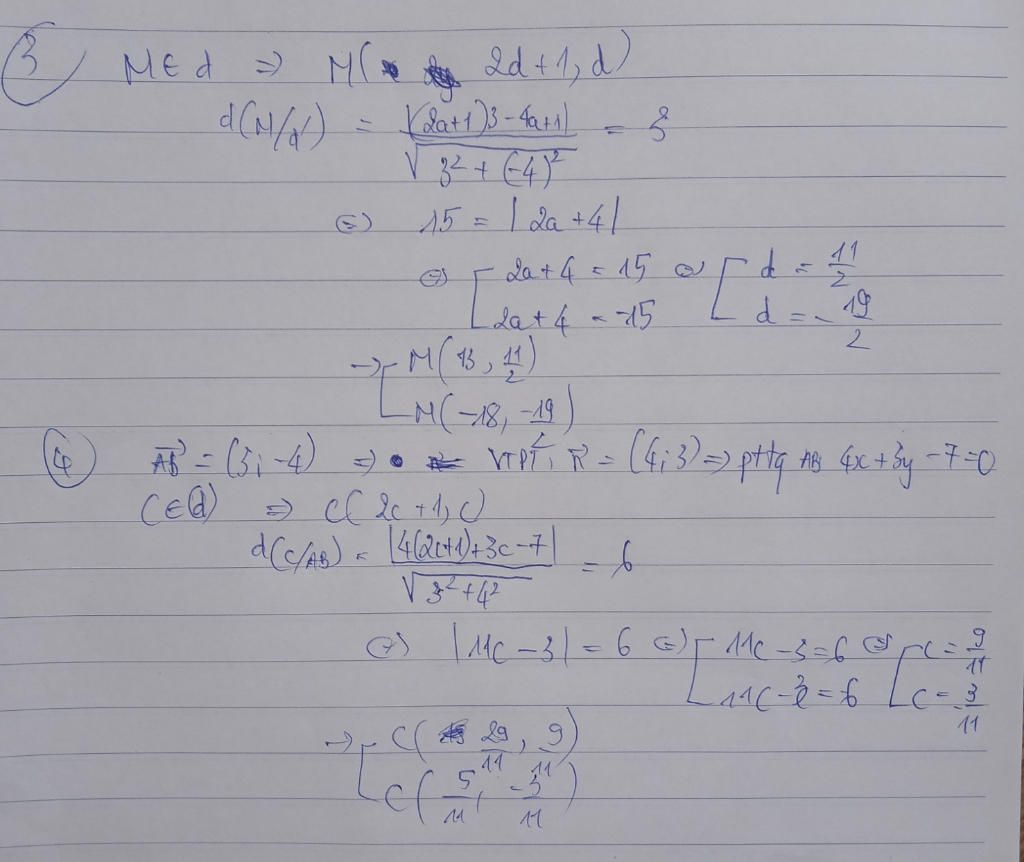 3 M ∈ d ⇒ M( 2d+1, d)
d(M/d') = |(2a+1)3-4a+1| / √(3² + (-4)²) = 3
⇔ 15 = |2a+4|
⇔ [ 2a+4 = 15 ⇔ [ d = 11/2
2a+4 = -15 d = -19/2
→ [ M(13, 11/2)
M(-18, -19/2)
4 AB = (3; -4) ⇒ VTPT = (4; 3) ⇒ pttq AB 4x+3y-7=0
C∈(d) ⇒ C(2c+1, c)
d(C/AB) = |4(2c+1)+3c-7| / √(3²+4²) = 6
⇔ |11c-3| = 6 ⇔ [ 11c-3=6 ⇔ [ c = 9/11
11c-3=-6 c = -3/11
→ [ C( 29/11, 9/11)
C( 5/11, -3/11)